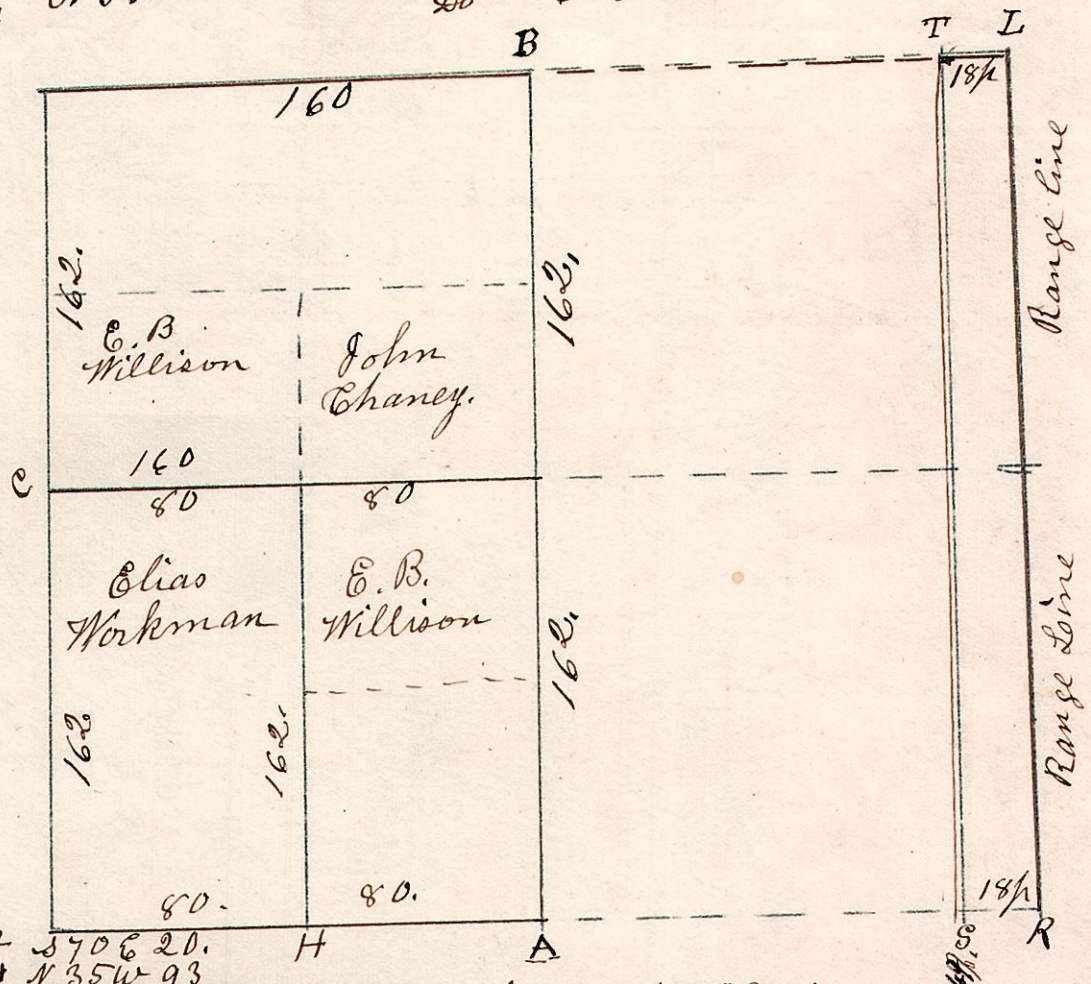 Do
B
T L
160
18p
Range Line
162.
162,
E. B
Willison
John
Chaney.
160
C
80
80
Elias
Workman
E. B.
Willison
162.
Range Line
162
162.
80.
80.
18p
S 70 E 20.
H
A
R
N 35 W 93